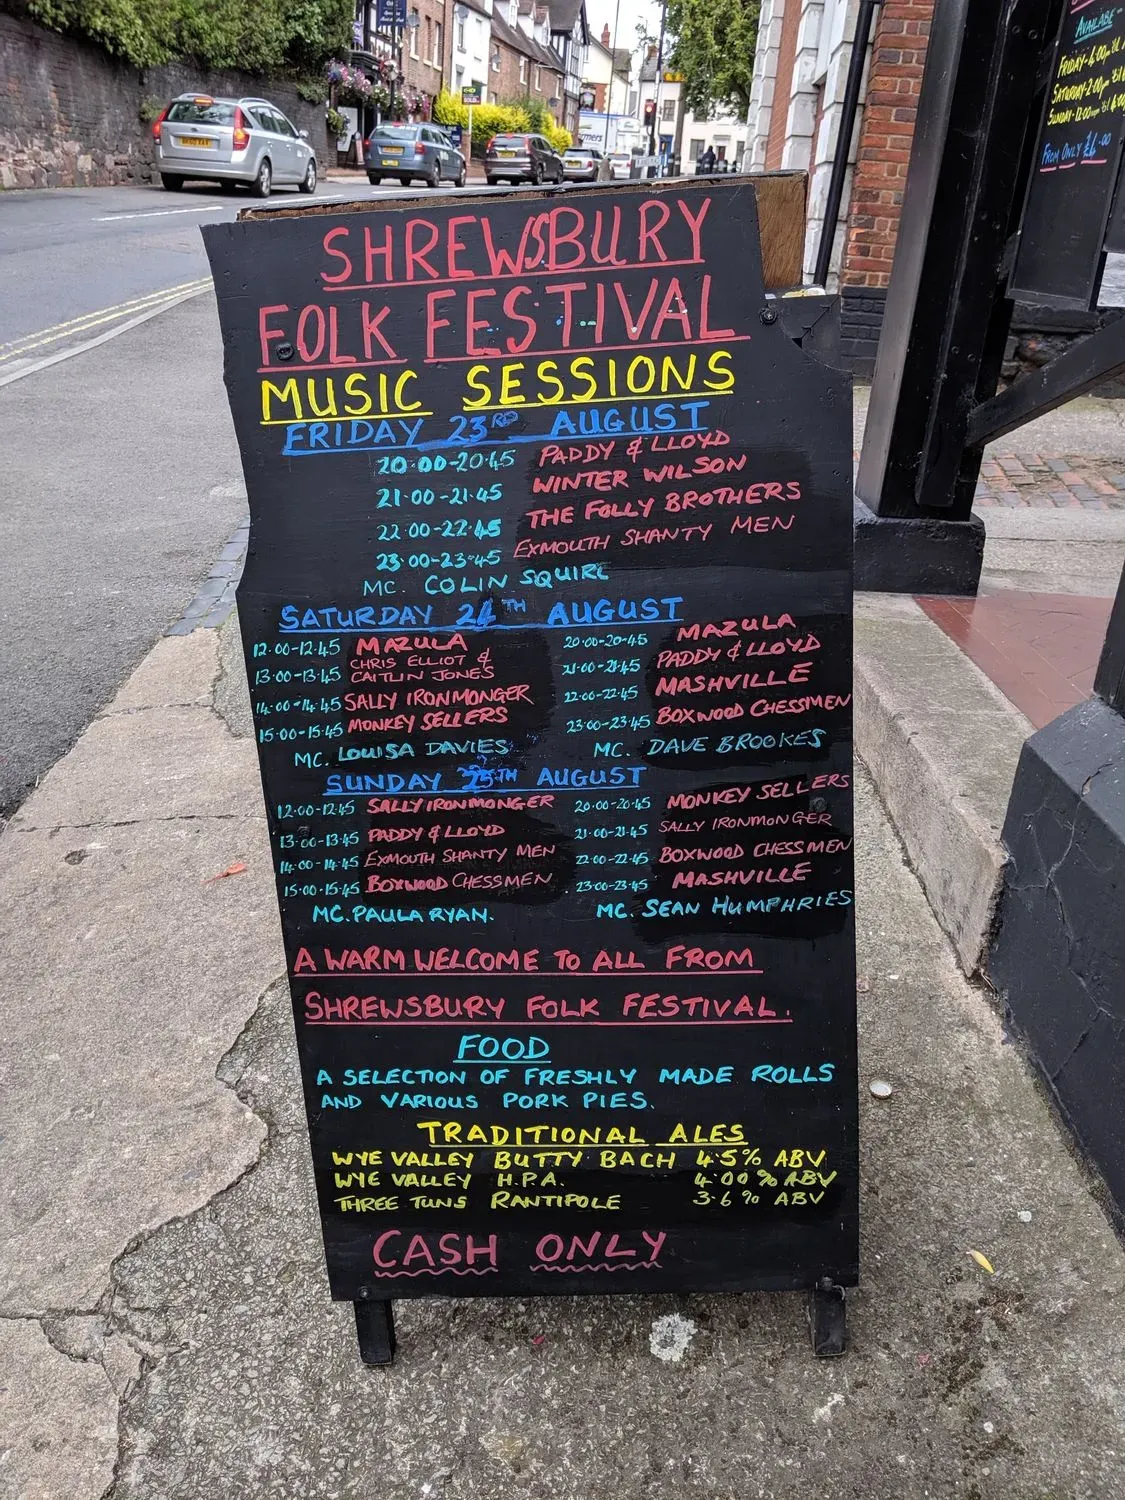 SHREWSBURY
FOLK FESTIVAL
MUSIC SESSIONS
FRIDAY 23RD AUGUST
20·00-20·45 PADDY & LLOYD
21·00-21·45 WINTER WILSON
22·00-22·45 THE FOLLY BROTHERS
23·00-23·45 EXMOUTH SHANTY MEN
MC. COLIN SQUIRE
SATURDAY 24TH AUGUST
12·00-12·45 MAZULA
13·00-13·45 CHRIS ELLIOT &
CAITLIN JONES
14·00-14·45 SALLY IRONMONGER
15·00-15·45 MONKEY SELLERS
MC. LOUISA DAVIES
20·00-20·45 MAZULA
21·00-21·45 PADDY & LLOYD
22·00-22·45 MASHVILLE
23·00-23·45 BOXWOOD CHESSMEN
MC. DAVE BROOKES
SUNDAY 25TH AUGUST
12·00-12·45 SALLY IRONMONGER
13·00-13·45 PADDY & LLOYD
14·00-14·45 EXMOUTH SHANTY MEN
15·00-15·45 BOXWOOD CHESSMEN
MC. PAULA RYAN.
20·00-20·45 MONKEY SELLERS
21·00-21·45 SALLY IRONMONGER
22·00-22·45 BOXWOOD CHESSMEN
23·00-23·45 MASHVILLE
MC. SEAN HUMPHRIES
A WARM WELCOME TO ALL FROM
SHREWSBURY FOLK FESTIVAL.
FOOD
A SELECTION OF FRESHLY MADE ROLLS
AND VARIOUS PORK PIES.
TRADITIONAL ALES
WYE VALLEY BUTTY BACH 4·5% ABV
WYE VALLEY H.P.A. 4·00% ABV
THREE TUNS RANTIPOLE 3·6% ABV
CASH ONLY
AVAILABE
FRIDAY-6.00pm
SATURDAY-2.00pm
SUNDAY-12.00
FROM ONLY
SOLD